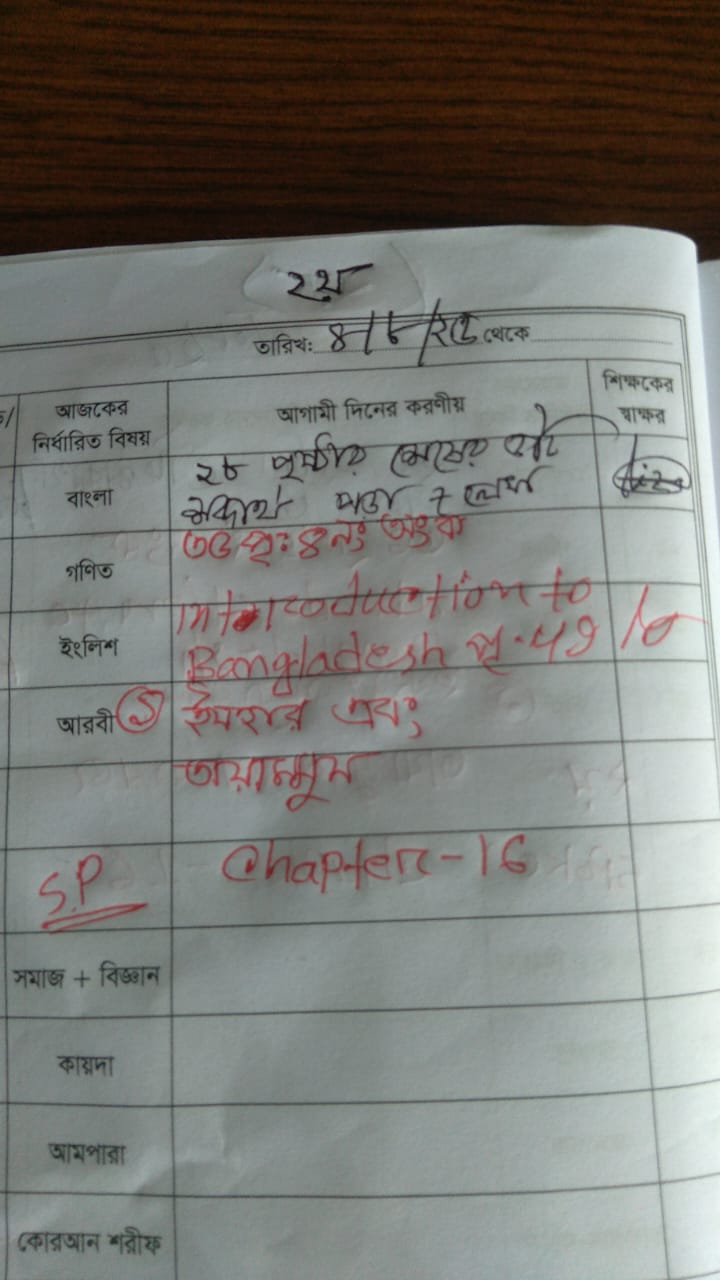 ২য়
তারিখঃ ৪/৮/২৫ থেকে
আজকের নির্ধারিত বিষয়
আগামী দিনের করণীয়
শিক্ষকের স্বাক্ষর
বাংলা
২৮ পৃষ্ঠার শেষের
শব্দার্থ পড়া + লেখা
গণিত
পৃঃ ৪নং অংক
ইংলিশ
Introduction to
Bangladesh পৃ-৭৪
আরবী
ইযহার এবং
তায়াম্মুম
S.P
Chapter-16
সমাজ + বিজ্ঞান
কায়দা
আমপারা
কোরআন শরীফ